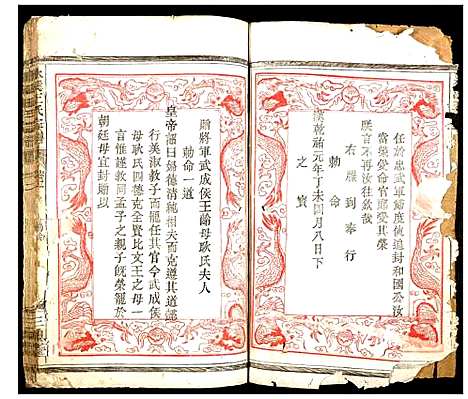 任於忠武軍節度使追封和國公汝
當榮受命官爵受其榮
朕言不再汝往欽哉
右牒到奉行
勅命
漢乾祐元年丁未四月八日下
之寶
贈將軍武成侯王諭母耿氏夫人
勅命一道
皇帝詔曰婦德清純相夫而克遵其道謠
行美淑教子而寵任其官今武成侯
母耿氏四德克全賢比文王之母一
言惟謹教同孟子之親子既榮寵於
朝廷母宜封贈以
三槐堂